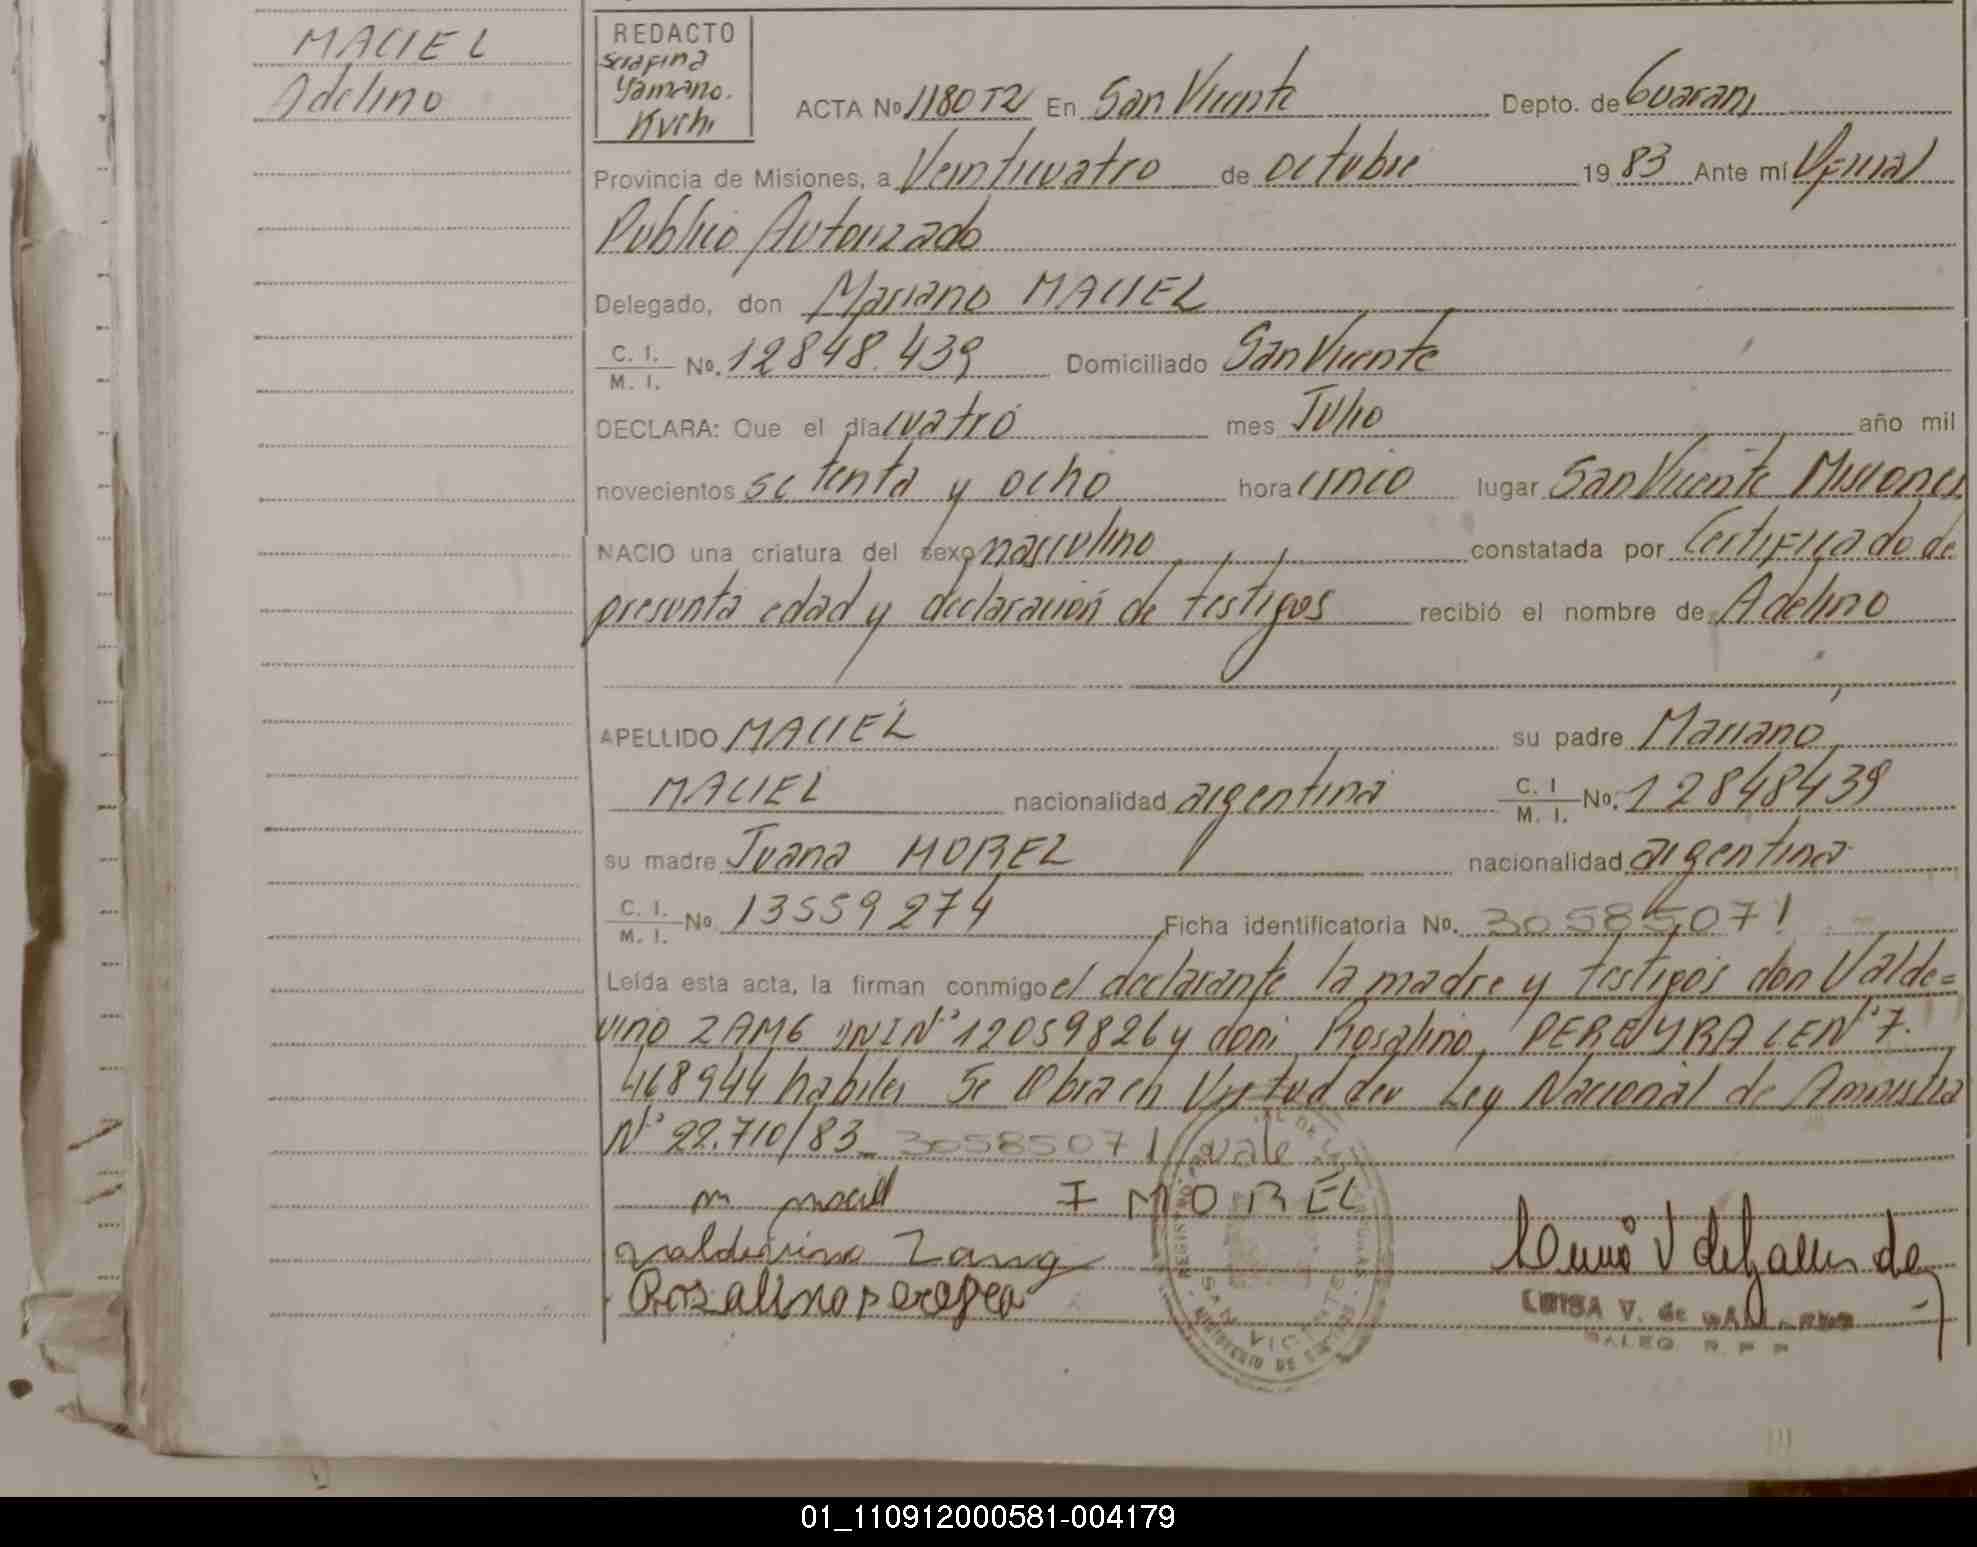 MACIEL
Adelino
REDACTO
Serafina
Yamano.
Kuchi
ACTA Nº 1180 T2 En San Vicente Depto. de Guaraní
Provincia de Misiones, a Veinticuatro de octubre 19 83 Ante mí Oficial
Publico Autorizado
Delegado, don Mariano MACIEL
C. I. / M. I. Nº. 12848.439 Domiciliado San Vicente
DECLARA: Que el día cuatro mes Julio año mil
novecientos setenta y ocho hora cinco lugar San Vicente Misiones
NACIO una criatura del sexo masculino constatada por Certificado de
presunta edad y declaración de testigos recibió el nombre de Adelino
APELLIDO MACIEL su padre Mariano
MACIEL nacionalidad argentina C. I / M. I. Nº. 12848439
su madre Juana MOREL nacionalidad argentina
C. I. / M. I. Nº 13559274 Ficha identificatoria Nº. 30585071
Leída esta acta, la firman conmigo el declarante la madre y testigos don Valde=
vino ZAMG DNI Nº 12059826 y don Rosalino PEREYRA LEN º 7.
468944 habiles Se Obra en Virtud de Ley Nacional de Amnistia
Nº 22.710/83_ 30585071 // vale
m maciel I MOREL
valdevino Zang
Rozalino pereyra
LUISA V. de
R. P. P
SAN VICENTE
MINISTERIO DE
01_110912000581-004179